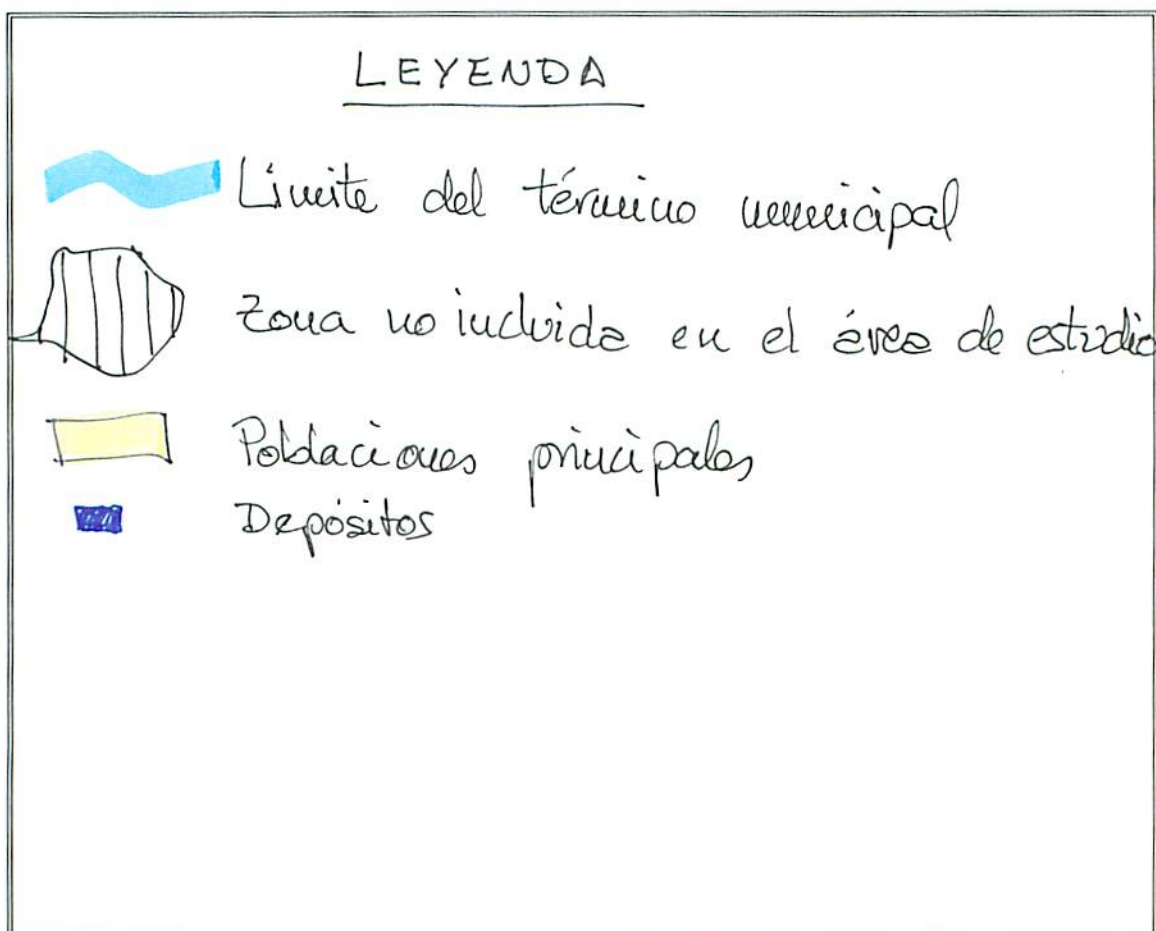 LEYENDA
Límite del término municipal
Zona no incluida en el área de estudio
Poblaciones principales
Depósitos